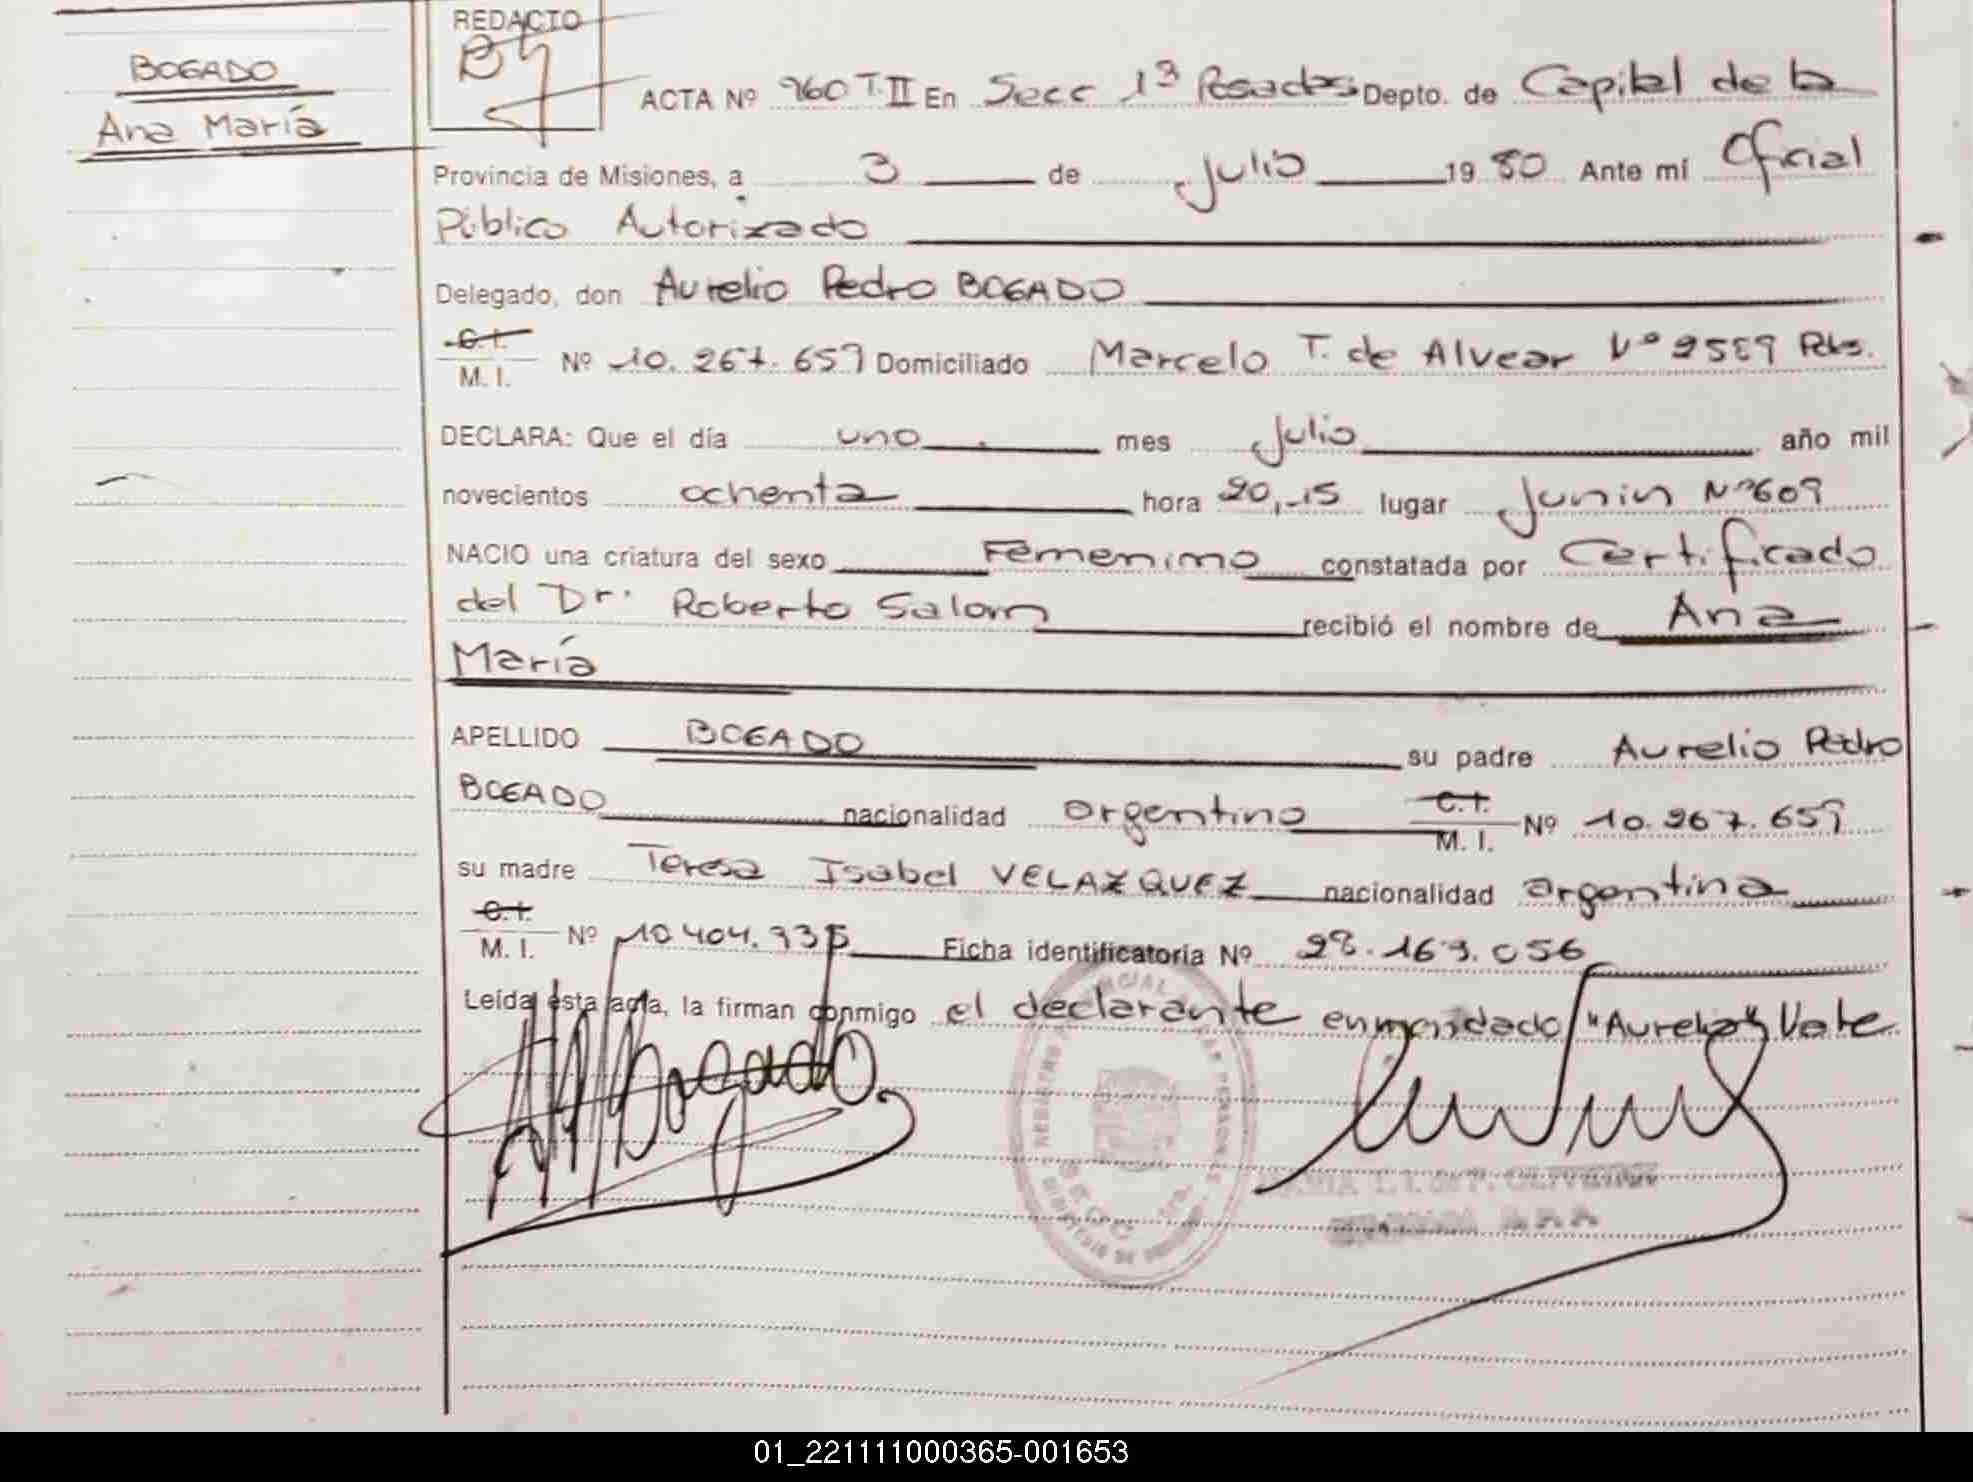 BOGADO
Ana María
REDACTO
ACTA Nº 960 T.II En Secc 1ª Posadas Depto. de Capital de la
Provincia de Misiones, a 3 de Julio 1980 Ante mí Oficial
Público Autorizado
Delegado, don Aurelio Pedro BOGADO
C.I.
M. I. Nº 10.267.659 Domiciliado Marcelo T. de Alvear Nº 2559 Pdas.
DECLARA: Que el día uno mes Julio año mil
novecientos ochenta hora 20,15 lugar Junin Nº 609
NACIO una criatura del sexo Femenino constatada por Certificado
del Dr. Roberto Salom recibió el nombre de Ana
María
APELLIDO BOGADO su padre Aurelio Pedro
BOGADO nacionalidad argentino C.I. M. I. Nº 10.267.659
su madre Teresa Isabel VELAZQUEZ nacionalidad argentina
C.I.
M. I. Nº 10.404.935 Ficha identificatoria Nº 28.169.056
Leída esta acta, la firman conmigo el declarante enmendado "Aurelio" Vale
Bogado
01_221111000365-001653